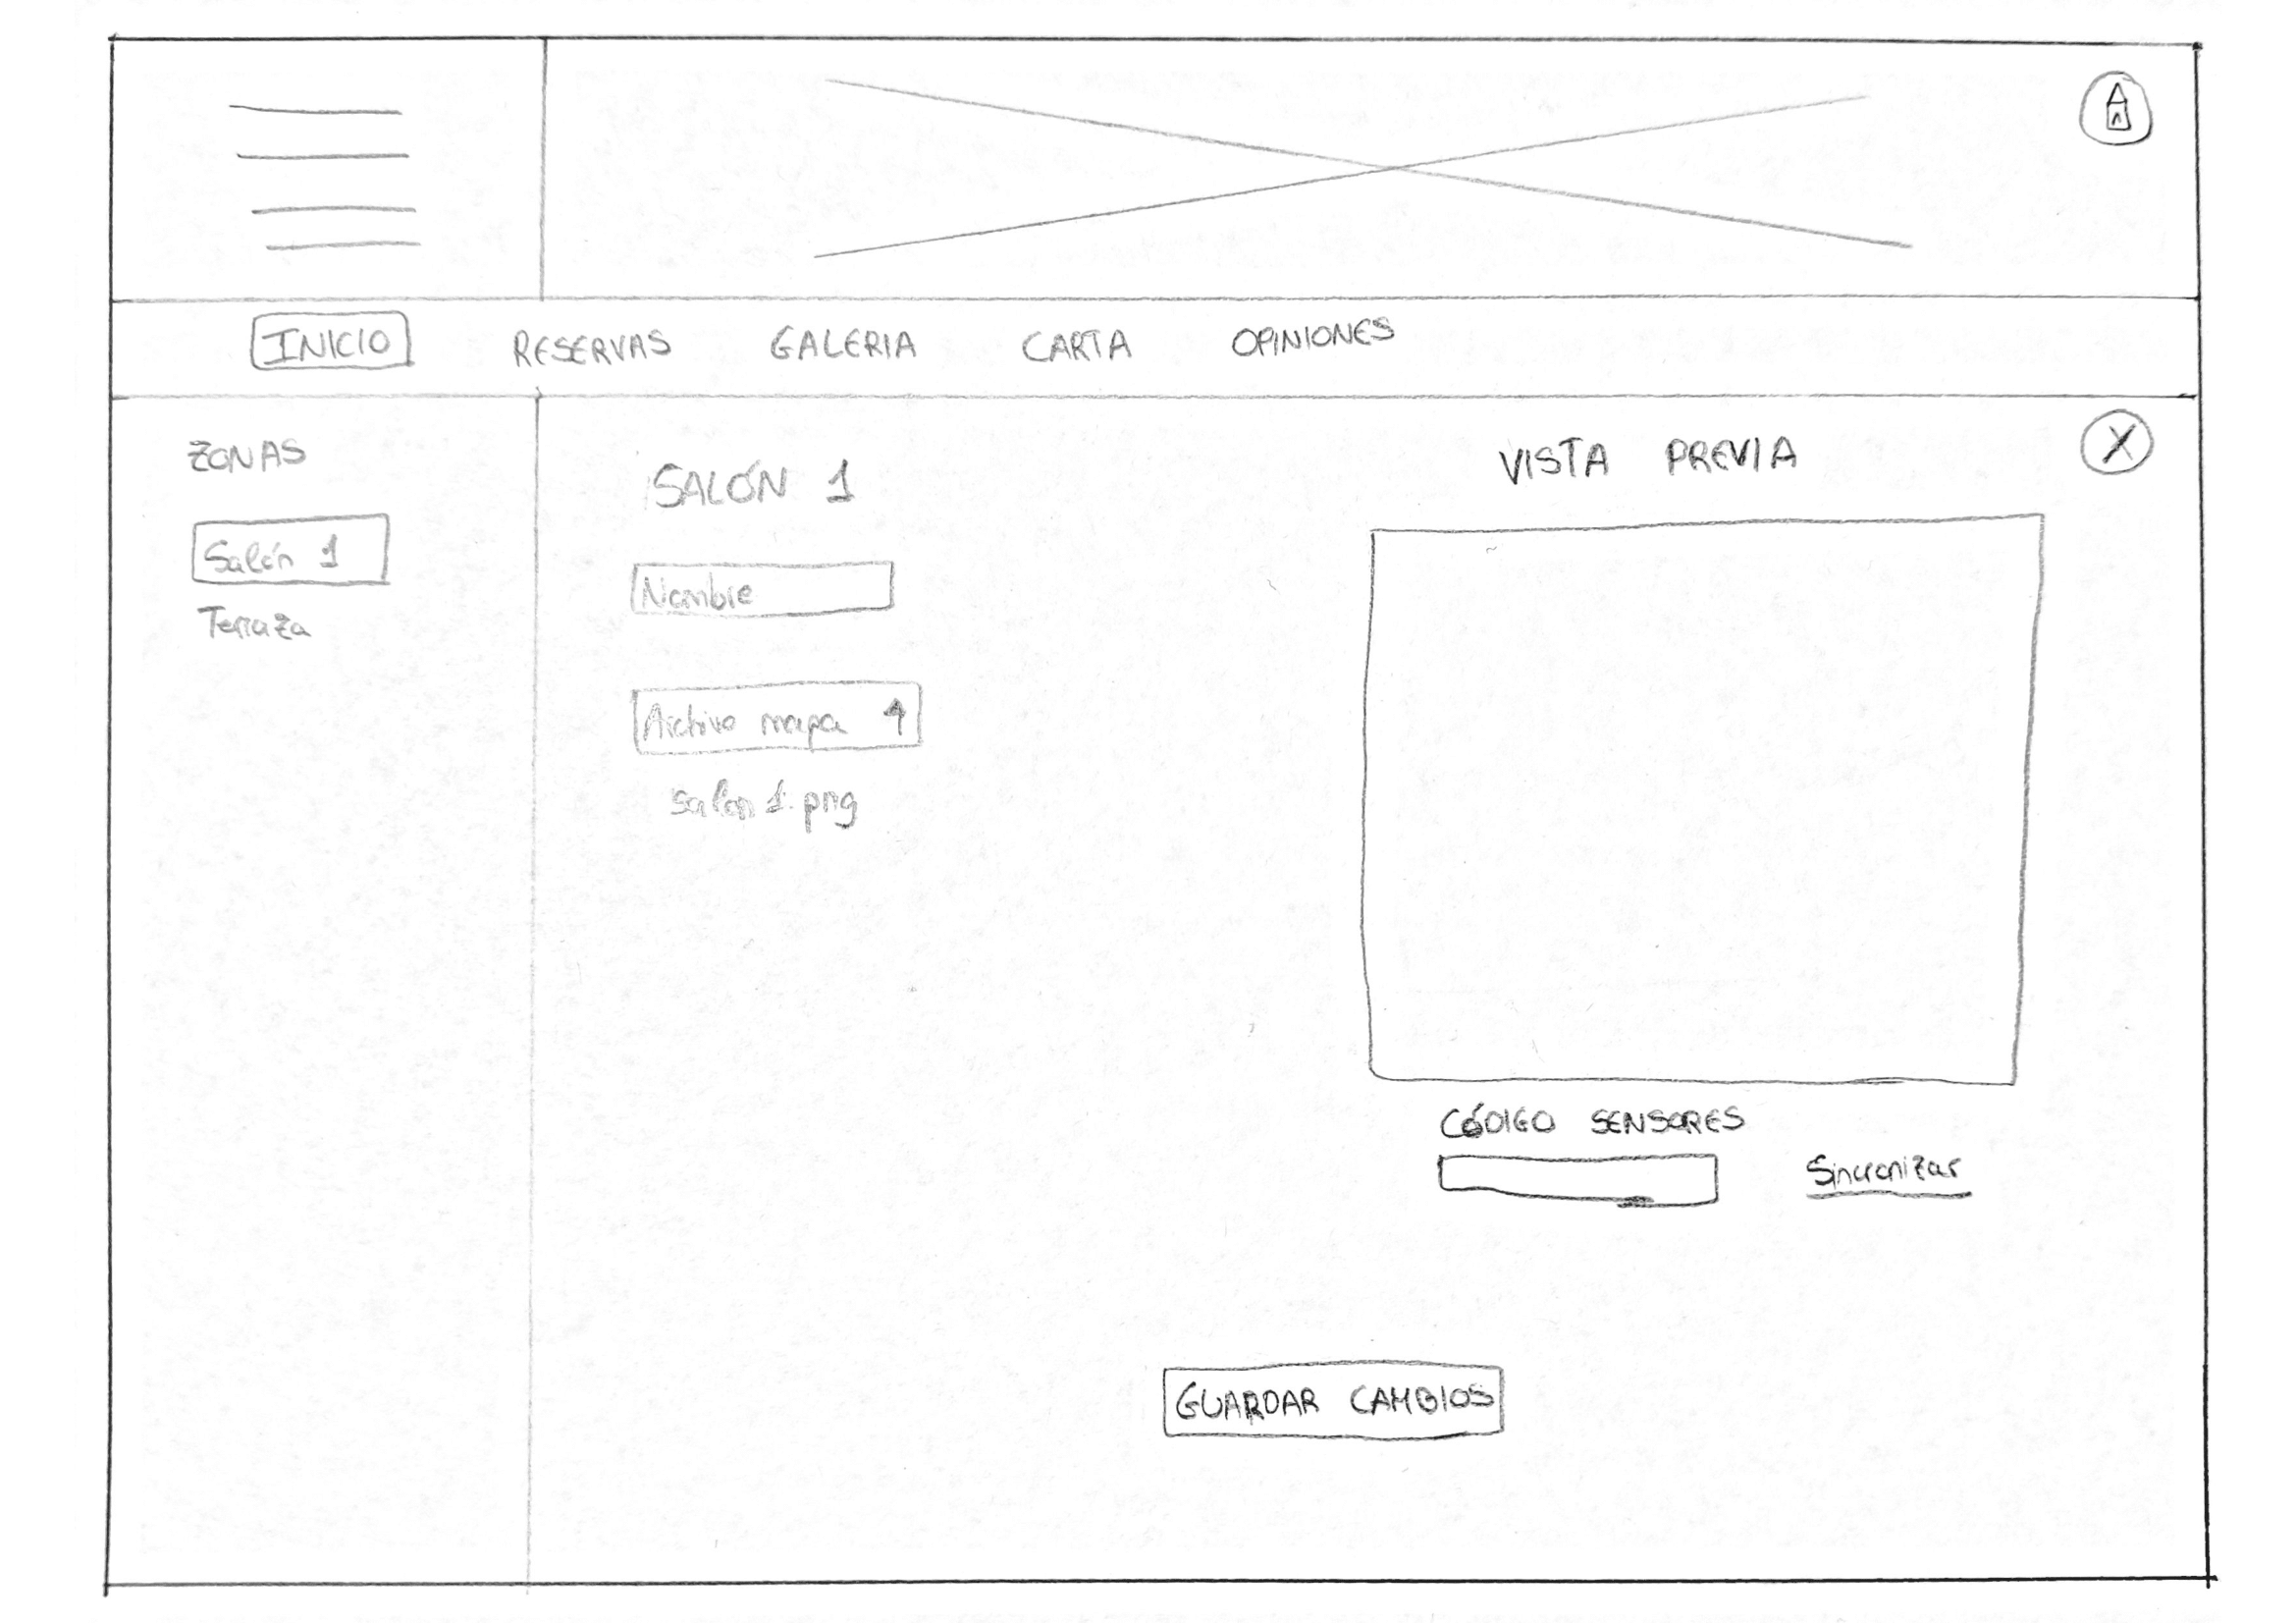 INICIO RESERVAS GALERIA CARTA OPINIONES
ZONAS
Salón 1
Terraza
SALÓN 1
Nombre
Archivo mapa
salon 1.png
VISTA PREVIA
X
CÓDIGO SENSORES
Sincronizar
GUARDAR CAMBIOS